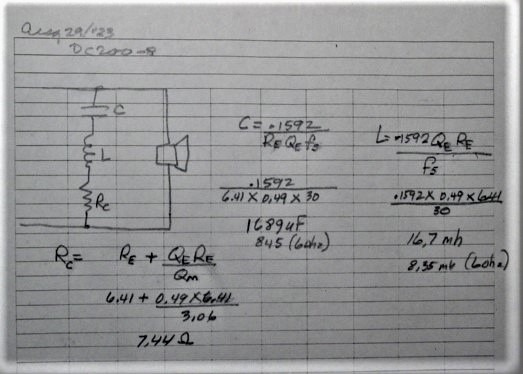 Aug 29/'23
DC200-8
C
L
Rc
C = .1592
RE QE fs
.1592
6.41 X 0.49 X 30
1689uF
845 (60hz)
L = .1592 QE RE
fs
.1592 X 0.49 X 6.41
30
16,7 mh
8,35 mh (60hz)
Rc = RE + QE RE
Qm
6.41 + 0.49 X 6.41
3.06
7,44 Ω